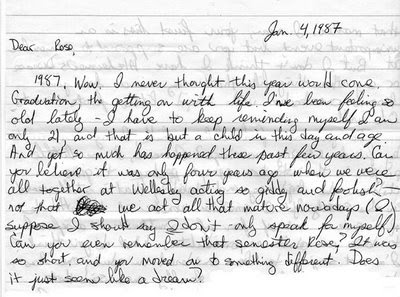 Jan. 4, 1987
Dear Rose,
1987. Wow. I never thought this year would come.
Graduation, the getting on with life. I've been feeling so
old lately - I have to keep reminding myself I am
only 21, and that is but a child in this day and age.
And yet so much has happened these past few years. Can
you believe it was only four years ago when we were
all together at Wellesley acting so giddy and foolish? -
not that we act all that mature nowadays (I
suppose I should say I don't - only speak for myself)
Can you even remember that semester Rose? It was
so short, and you moved on to something different. Does
it just seem like a dream?